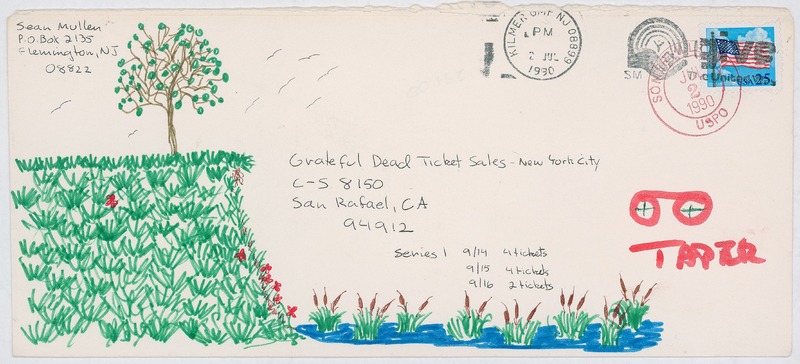 Sean Mullen
P.O. Box 2135
Flemington, NJ
08822
KILMER GMF NJ 08899
PM
2 JUL
1990
SM
USA 25
JUL
2
1990
USPO
Grateful Dead Ticket Sales - New York City
C-S 8150
San Rafael, CA
94912
Series 1 9/14 4 tickets
9/15 4 tickets
9/16 2 tickets
TAPER